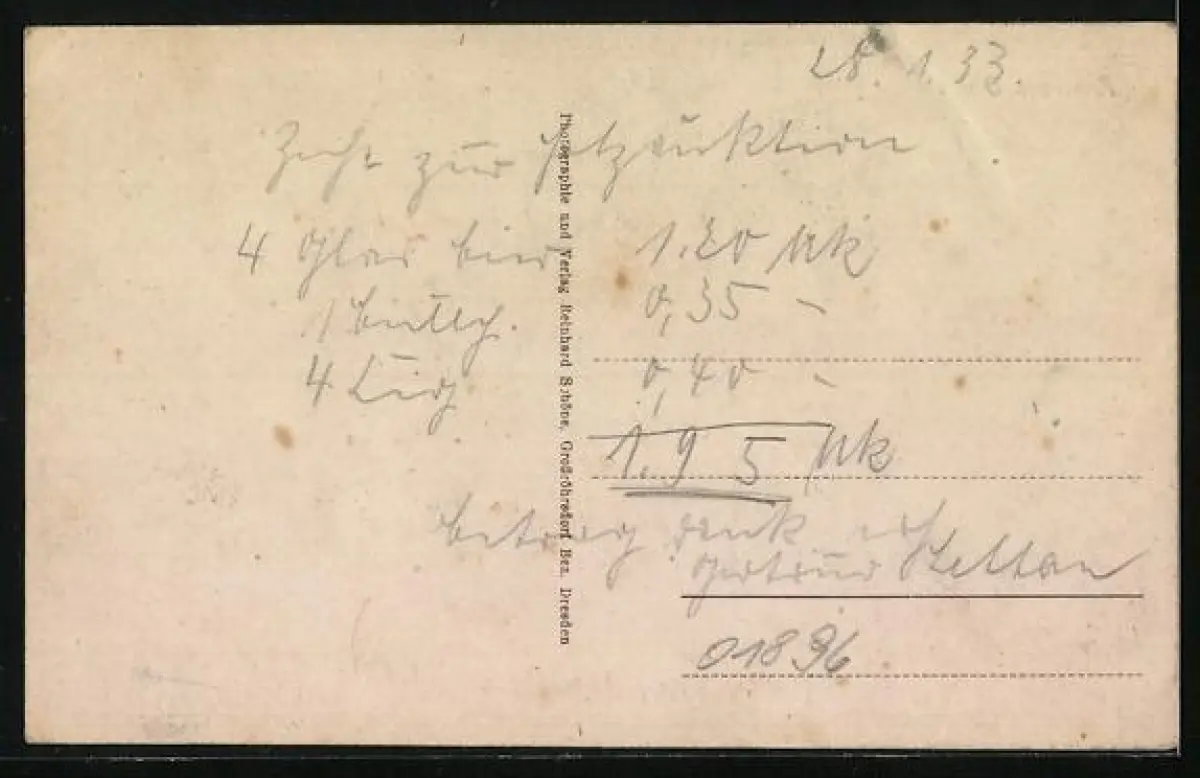 28. 1. 33.
Zeche zur Holzauktion
4 Glas Bier 1.20 Mk
1 0,35 -
4 Zig. 0,40 -
1.95 Mk
Betrag dank. erh.
Gertrud
01896
Photographie und Verlag Reinhard Schöne, Großröhrsdorf Bez. Dresden